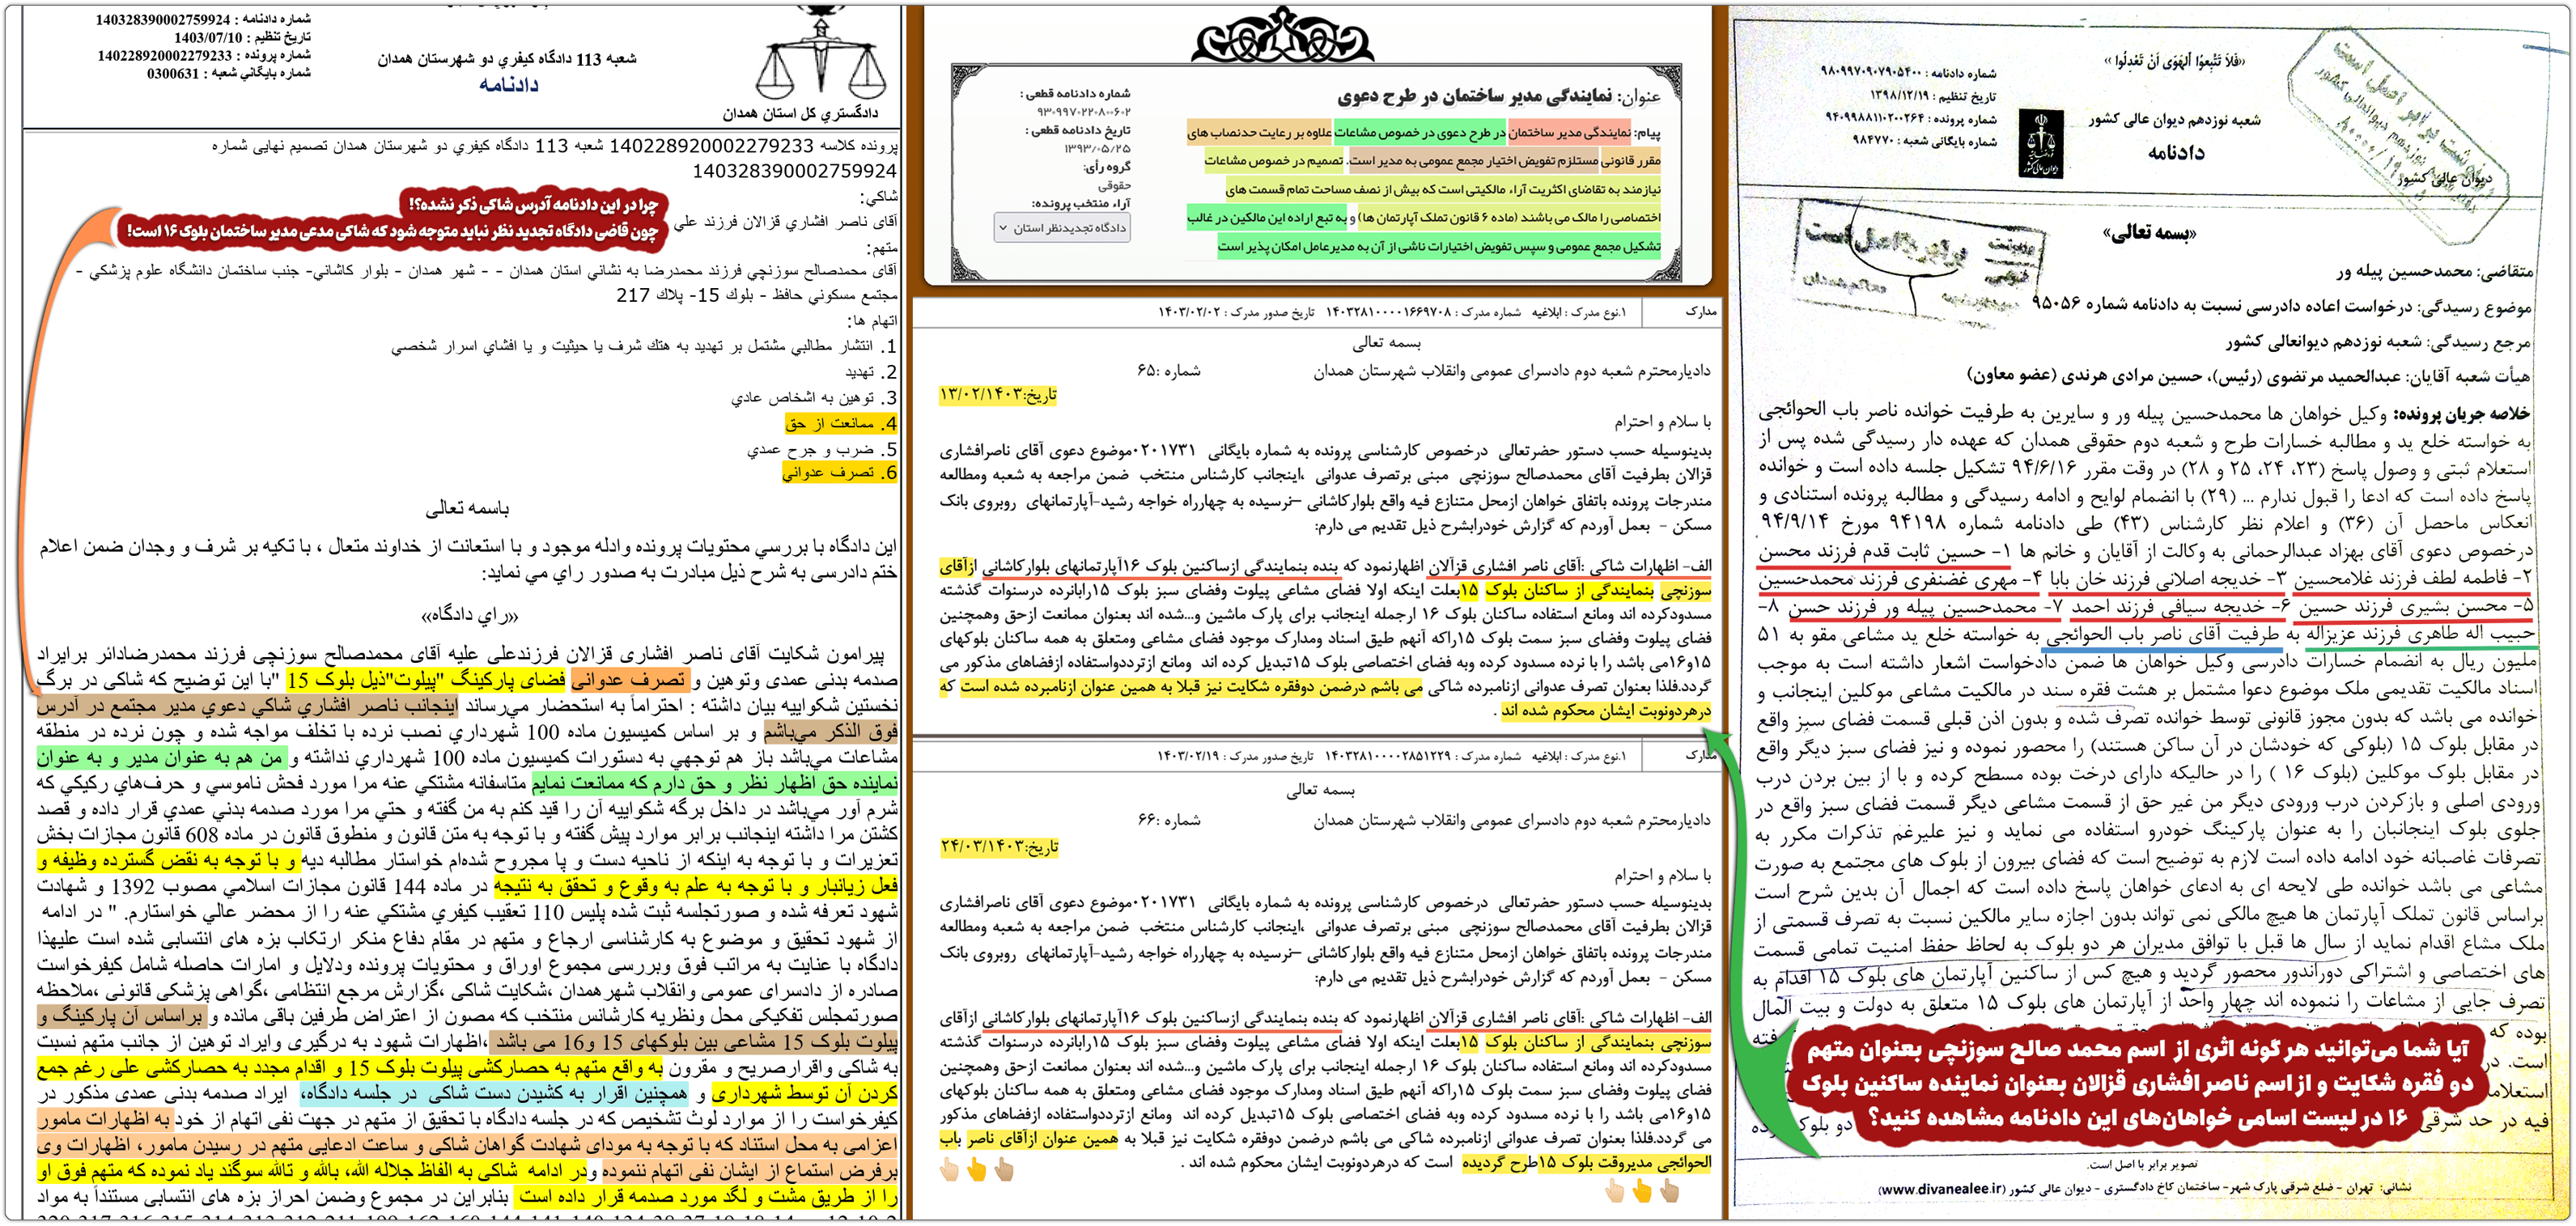 «فَلاَ تَتَّبِعوُا الْهَوَى اَنْ تَعْدِلُوا »
شماره دادنامه : ۹۸۰۹۹۷۰۹۰۷۹۰۵۴۰۰
تاریخ تنظیم : ۱۳۹۸/۱۲/۱۹
شماره پرونده : ۹۴۰۹۹۸۸۱۱۰۲۰۰۲۶۴
شماره بایگانی شعبه : ۹۸۴۷۷۰
شعبه نوزدهم دیوان عالی کشور
دادنامه
دیوان عالی کشور
«بسمه تعالی»
متقاضی: محمدحسین پیله ور
موضوع رسیدگی: درخواست اعاده دادرسی نسبت به دادنامه شماره ۹۵۰۵۶
مرجع رسیدگی: شعبه نوزدهم دیوانعالی کشور
هیأت شعبه آقایان: عبدالحمید مرتضوی (رئیس)، حسین مرادی هرندی (عضو معاون)
خلاصه جریان پرونده: وکیل خواهان ها محمدحسین پیله ور و سایرین به طرفیت خوانده ناصر باب الحوائجی
به خواسته خلع ید و مطالبه خسارات طرح و شعبه دوم حقوقی همدان که عهده دار رسیدگی شده پس از
استعلام ثبتی و وصول پاسخ (۲۳، ۲۴، ۲۵ و ۲۸) در وقت مقرر ۹۴/۶/۱۶ تشکیل جلسه داده است و خوانده
پاسخ داده است که ادعا را قبول ندارم ... (۲۹) با انضمام لوایح و ادامه رسیدگی و مطالبه پرونده استنادی و
انعکاس ماحصل آن (۳۶) و اعلام نظر کارشناس (۴۳) طی دادنامه شماره ۹۴۱۹۸ مورخ ۹۴/۹/۱۴
درخصوص دعوی آقای بهزاد عبدالرحمانی به وکالت از آقایان و خانم ها ۱- حسین ثابت قدم فرزند محسن
۲- فاطمه لطف فرزند غلامحسین ۳- خدیجه اصلانی فرزند خان بابا ۴- مهری غضنفری فرزند محمدحسین
۵- محسن بشیری فرزند حسین ۶- خدیجه سیافی فرزند احمد ۷- محمدحسین پیله ور فرزند حسن ۸-
حبیب اله طاهری فرزند عزیزاله به طرفیت آقای ناصر باب الحوائجی به خواسته خلع ید مشاعی مقو به ۵۱
ملیون ریال به انضمام خسارات دادرسی وکیل خواهان ها ضمن دادخواست اشعار داشته است به موجب
اسناد مالکیت تقدیمی ملک موضوع دعوا مشتمل بر هشت فقره سند در مالکیت مشاعی موکلین اینجانب و
خوانده می باشد که بدون مجوز قانونی توسط خوانده تصرف شده و بدون اذن قبلی قسمت فضای سبز واقع
در مقابل بلوک ۱۵ (بلوکی که خودشان در آن ساکن هستند) را محصور نموده و نیز فضای سبز دیگر واقع
در مقابل بلوک موکلین (بلوک ۱۶ ) را در حالیکه دارای درخت بوده مسطح کرده و با از بین بردن درب
ورودی اصلی و بازکردن درب ورودی دیگر من غیر حق از قسمت مشاعی دیگر قسمت فضای سبز واقع در
جلوی بلوک اینجانبان را به عنوان پارکینگ خودرو استفاده می نماید و نیز علیرغم تذکرات مکرر به
تصرفات غاصبانه خود ادامه داده است لازم به توضیح است که فضای بیرون از بلوک های مجتمع به صورت
مشاعی می باشد خوانده طی لایحه ای به ادعای خواهان پاسخ داده است که اجمال آن بدین شرح است
براساس قانون تملک آپارتمان ها هیچ مالکی نمی تواند بدون اجازه سایر مالکین نسبت به تصرف قسمتی از
ملک مشاع اقدام نماید از سال ها قبل با توافق مدیران هر دو بلوک به لحاظ حفظ امنیت تمامی قسمت
های اختصاصی و اشتراکی دوراندور محصور گردید و هیچ کس از ساکنین آپارتمان های بلوک ۱۵ اقدام به
تصرف جایی از مشاعات را ننموده اند چهار واحد از آپارتمان های بلوک ۱۵ متعلق به دولت و بیت المال
بوده که
است. در
استعلام
فیه در حد شرقی
آیا شما می‌توانید هر گونه اثری از اسم محمد صالح سوزنچی بعنوان متهم
دو فقره شکایت و از اسم ناصر افشاری قزالان بعنوان نماینده ساکنین بلوک
۱۶ در لیست اسامی خواهان‌های این دادنامه مشاهده کنید؟
تصویر برابر با اصل است.
نشانی: تهران - ضلع شرقی پارک شهر- ساختمان کاخ دادگستری - دیوان عالی کشور (www.divanealee.ir)
عنوان: نمایندگی مدیر ساختمان در طرح دعوی
پیام: نمایندگی مدیر ساختمان در طرح دعوی در خصوص مشاعات علاوه بر رعایت حدنصاب های
مقرر قانونی مستلزم تفویض اختیار مجمع عمومی به مدیر است. تصمیم در خصوص مشاعات
نیازمند به تقاضای اکثریت آراء مالکیتی است که بیش از نصف مساحت تمام قسمت های
اختصاصی را مالک می باشند (ماده ۶ قانون تملک آپارتمان ها) و به تبع اراده این مالکین در غالب
تشکیل مجمع عمومی و سپس تفویض اختیارات ناشی از آن به مدیرعامل امکان پذیر است
شماره دادنامه قطعی :
۹۳۰۹۹۷۰۲۲۰۸۰۰۶۰۲
تاریخ دادنامه قطعی :
۱۳۹۳/۰۵/۲۵
گروه رأی:
حقوقی
آراء منتخب پرونده:
دادگاه تجدیدنظر استان
مدارک
۱.نوع مدرک : ابلاغیه شماره مدرک : ۱۴۰۳۲۸۱۰۰۰۰۱۶۶۹۷۰۸ تاریخ صدور مدرک : ۱۴۰۳/۰۲/۰۲
بسمه تعالی
دادیارمحترم شعبه دوم دادسرای عمومی وانقلاب شهرستان همدان شماره :۶۵
تاریخ:۱۳/۰۲/۱۴۰۳
با سلام و احترام
بدینوسیله حسب دستور حضرتعالی درخصوص کارشناسی پرونده به شماره بایگانی ۰۲۰۱۷۳۱موضوع دعوی آقای ناصرافشاری
قزالان بطرفیت آقای محمدصالح سوزنچی مبنی برتصرف عدوانی ،اینجانب کارشناس منتخب ضمن مراجعه به شعبه ومطالعه
مندرجات پرونده باتفاق خواهان ازمحل متنازع فیه واقع بلوارکاشانی –نرسیده به چهارراه خواجه رشید-آپارتمانهای روبروی بانک
مسکن - بعمل آوردم که گزارش خودرابشرح ذیل تقدیم می دارم:
الف- اظهارات شاکی :آقای ناصر افشاری قزآلان اظهارنمود که بنده بنمایندگی ازساکنین بلوک ۱۶آپارتمانهای بلوارکاشانی ازآقای
سوزنچی بنمایندگی از ساکنان بلوک ۱۵بعلت اینکه اولا فضای مشاعی پیلوت وفضای سبز بلوک ۱۵رابانرده درسنوات گذشته
مسدودکرده اند ومانع استفاده ساکنان بلوک ۱۶ ازجمله اینجانب برای پارک ماشین و...شده اند بعنوان ممانعت ازحق وهمچنین
فضای پیلوت وفضای سبز سمت بلوک ۱۵راکه آنهم طبق اسناد ومدارک موجود فضای مشاعی ومتعلق به همه ساکنان بلوکهای
۱۵و۱۶می باشد را با نرده مسدود کرده وبه فضای اختصاصی بلوک ۱۵تبدیل کرده اند ومانع ازترددواستفاده ازفضاهای مذکور می
گردد.فلذا بعنوان تصرف عدوانی ازنامبرده شاکی می باشم درضمن دوفقره شکایت نیز قبلا به همین عنوان ازنامبرده شده است که
درهردونوبت ایشان محکوم شده اند .
مدارک
۱.نوع مدرک : ابلاغیه شماره مدرک : ۱۴۰۳۲۸۱۰۰۰۰۲۸۵۱۲۲۹ تاریخ صدور مدرک : ۱۴۰۳/۰۲/۱۹
بسمه تعالی
دادیارمحترم شعبه دوم دادسرای عمومی وانقلاب شهرستان همدان شماره :۶۶
تاریخ:۲۴/۰۳/۱۴۰۳
با سلام و احترام
بدینوسیله حسب دستور حضرتعالی درخصوص کارشناسی پرونده به شماره بایگانی ۰۲۰۱۷۳۱موضوع دعوی آقای ناصرافشاری
قزالان بطرفیت آقای محمدصالح سوزنچی مبنی برتصرف عدوانی ،اینجانب کارشناس منتخب ضمن مراجعه به شعبه ومطالعه
مندرجات پرونده باتفاق خواهان ازمحل متنازع فیه واقع بلوارکاشانی –نرسیده به چهارراه خواجه رشید-آپارتمانهای روبروی بانک
مسکن - بعمل آوردم که گزارش خودرابشرح ذیل تقدیم می دارم:
الف- اظهارات شاکی :آقای ناصر افشاری قزآلان اظهارنمود که بنده بنمایندگی ازساکنین بلوک ۱۶آپارتمانهای بلوارکاشانی ازآقای
سوزنچی بنمایندگی از ساکنان بلوک ۱۵بعلت اینکه اولا فضای مشاعی پیلوت وفضای سبز بلوک ۱۵رابانرده درسنوات گذشته
مسدودکرده اند ومانع استفاده ساکنان بلوک ۱۶ ازجمله اینجانب برای پارک ماشین و...شده اند بعنوان ممانعت ازحق وهمچنین
فضای پیلوت وفضای سبز سمت بلوک ۱۵راکه آنهم طبق اسناد ومدارک موجود فضای مشاعی ومتعلق به همه ساکنان بلوکهای
۱۵و۱۶می باشد را با نرده مسدود کرده وبه فضای اختصاصی بلوک ۱۵تبدیل کرده اند ومانع ازترددواستفاده ازفضاهای مذکور
می گردد.فلذا بعنوان تصرف عدوانی ازنامبرده شاکی می باشم درضمن دوفقره شکایت نیز قبلا به همین عنوان ازآقای ناصر باب
الحوائجی مدیروقت بلوک ۱۵طرح گردیده است که درهردونوبت ایشان محکوم شده اند .
شماره دادنامه : 140328390002759924
تاریخ تنظیم : 1403/07/10
شماره پرونده : 140228920002279233
شماره بایگاني شعبه : 0300631
شعبه 113 دادگاه كیفري دو شهرستان همدان
دادنامه
دادگستري كل استان همدان
پرونده كلاسه 140228920002279233 شعبه 113 دادگاه كیفري دو شهرستان همدان تصمیم نهایی شماره
140328390002759924
شاکي:
چرا در این دادنامه آدرس شاکی ذکر نشده؟!
چون قاضی دادگاه تجدید نظر نباید متوجه شود که شاکی مدعی مدیر ساختمان بلوک ۱۶ است!
آقای ناصر افشاري قزالان فرزند علي
متهم:
آقای محمدصالح سوزنچي فرزند محمدرضا به نشاني استان همدان - - شهر همدان - بلوار كاشاني- جنب ساختمان دانشگاه علوم پزشكي -
مجتمع مسكوني حافظ - بلوك 15- پلاك 217
اتهام ها:
1. انتشار مطالبي مشتمل بر تهدید به هتك شرف یا حیثیت و یا افشاي اسرار شخصي
2. تهدید
3. توهین به اشخاص عادي
4. ممانعت از حق
5. ضرب و جرح عمدي
6. تصرف عدواني
باسمه تعالی
این دادگاه با بررسي محتویات پرونده وادله موجود و با استعانت از خداوند متعال ، با تكیه بر شرف و وجدان ضمن اعلام
ختم دادرسی به شرح ذیل مبادرت به صدور راي مي نماید:
«راي دادگاه»
پیرامون شکایت آقای ناصر افشاری قزالان فرزندعلی علیه آقای محمدصالح سوزنچی فرزند محمدرضادائر برایراد
صدمه بدنی عمدی وتوهین و تصرف عدوانی فضای پارکینگ "پیلوت"ذیل بلوک 15 "با این توضیح که شاکی در برگ
نخستین شکواییه بیان داشته : احتراماً به استحضار مي‌رساند اینجانب ناصر افشاري شاكي دعوي مدیر مجتمع در آدرس
فوق الذكر مي‌باشم و بر اساس كمیسیون ماده 100 شهرداري نصب نرده با تخلف مواجه شده و چون نرده در منطقه
مشاعات مي‌باشد باز هم توجهي به دستورات كمیسیون ماده 100 شهرداري نداشته و من هم به عنوان مدیر و به عنوان
نماینده حق اظهار نظر و حق دارم كه ممانعت نمایم متاسفانه مشتكي عنه مرا مورد فحش ناموسي و حرف‌هاي ركیكي كه
شرم آور مي‌باشد در داخل برگه شكواییه آن را قید كنم به من گفته و حتي مرا مورد صدمه بدني عمدي قرار داده و قصد
كشتن مرا داشته اینجانب برابر موارد پیش گفته و با توجه به متن قانون و منطوق قانون در ماده 608 قانون مجازات بخش
تعزیرات و با توجه به اینكه از ناحیه دست و پا مجروح شده‌ام خواستار مطالبه دیه و با توجه به نقض گسترده وظیفه و
فعل زیانبار و با توجه به علم به وقوع و تحقق به نتیجه در ماده 144 قانون مجازات اسلامي مصوب 1392 و شهادت
شهود تعرفه شده و صورتجلسه ثبت شده پلیس 110 تعقیب كیفري مشتكي عنه را از محضر عالي خواستارم. " در ادامه
از شهود تحقیق و موضوع به کارشناسی ارجاع و متهم در مقام دفاع منکر ارتکاب بزه های انتسابی شده است علیهذا
دادگاه با عنایت به مراتب فوق وبررسی مجموع اوراق و محتویات پرونده ودلایل و امارات حاصله شامل کیفرخواست
صادره از دادسرای عمومی وانقلاب شهرهمدان ،شکایت شاکی ،گزارش مرجع انتظامی ،گواهی پزشکی قانونی ،ملاحظه
صورتمجلس تفکیکی محل ونظریه کارشانس منتخب که مصون از اعتراض طرفین باقی مانده و براساس آن پارکینگ و
پیلوت بلوک 15 مشاعی بین بلوکهای 15 و16 می باشد ،اظهارات شهود به درگیری وایراد توهین از جانب متهم نسبت
به شاکی واقرارصریح و مقرون به واقع متهم به حصارکشی پیلوت بلوک 15 و اقدام مجدد به حصارکشی علی رغم جمع
کردن آن توسط شهرداری و همچنین اقرار به کشیدن دست شاکی در جلسه دادگاه، ایراد صدمه بدنی عمدی مذکور در
کیفرخواست را از موارد لوث تشخیص که در جلسه دادگاه با تحقیق از متهم در جهت نفی اتهام از خود به اظهارات مامور
اعزامی به محل استناد که با توجه به مودای شهادت گواهان شاکی و ساعت ادعایی متهم در رسیدن مامور، اظهارات وی
برفرض استماع از ایشان نفی اتهام ننموده ودر ادامه شاکی به الفاظ جلاله الله، بالله و تالله سوگند یاد نموده که متهم فوق او
را از طریق مشت و لگد مورد صدمه قرار داده است بنابراین در مجموع وضمن احراز بزه های انتسابی مستنداً به مواد